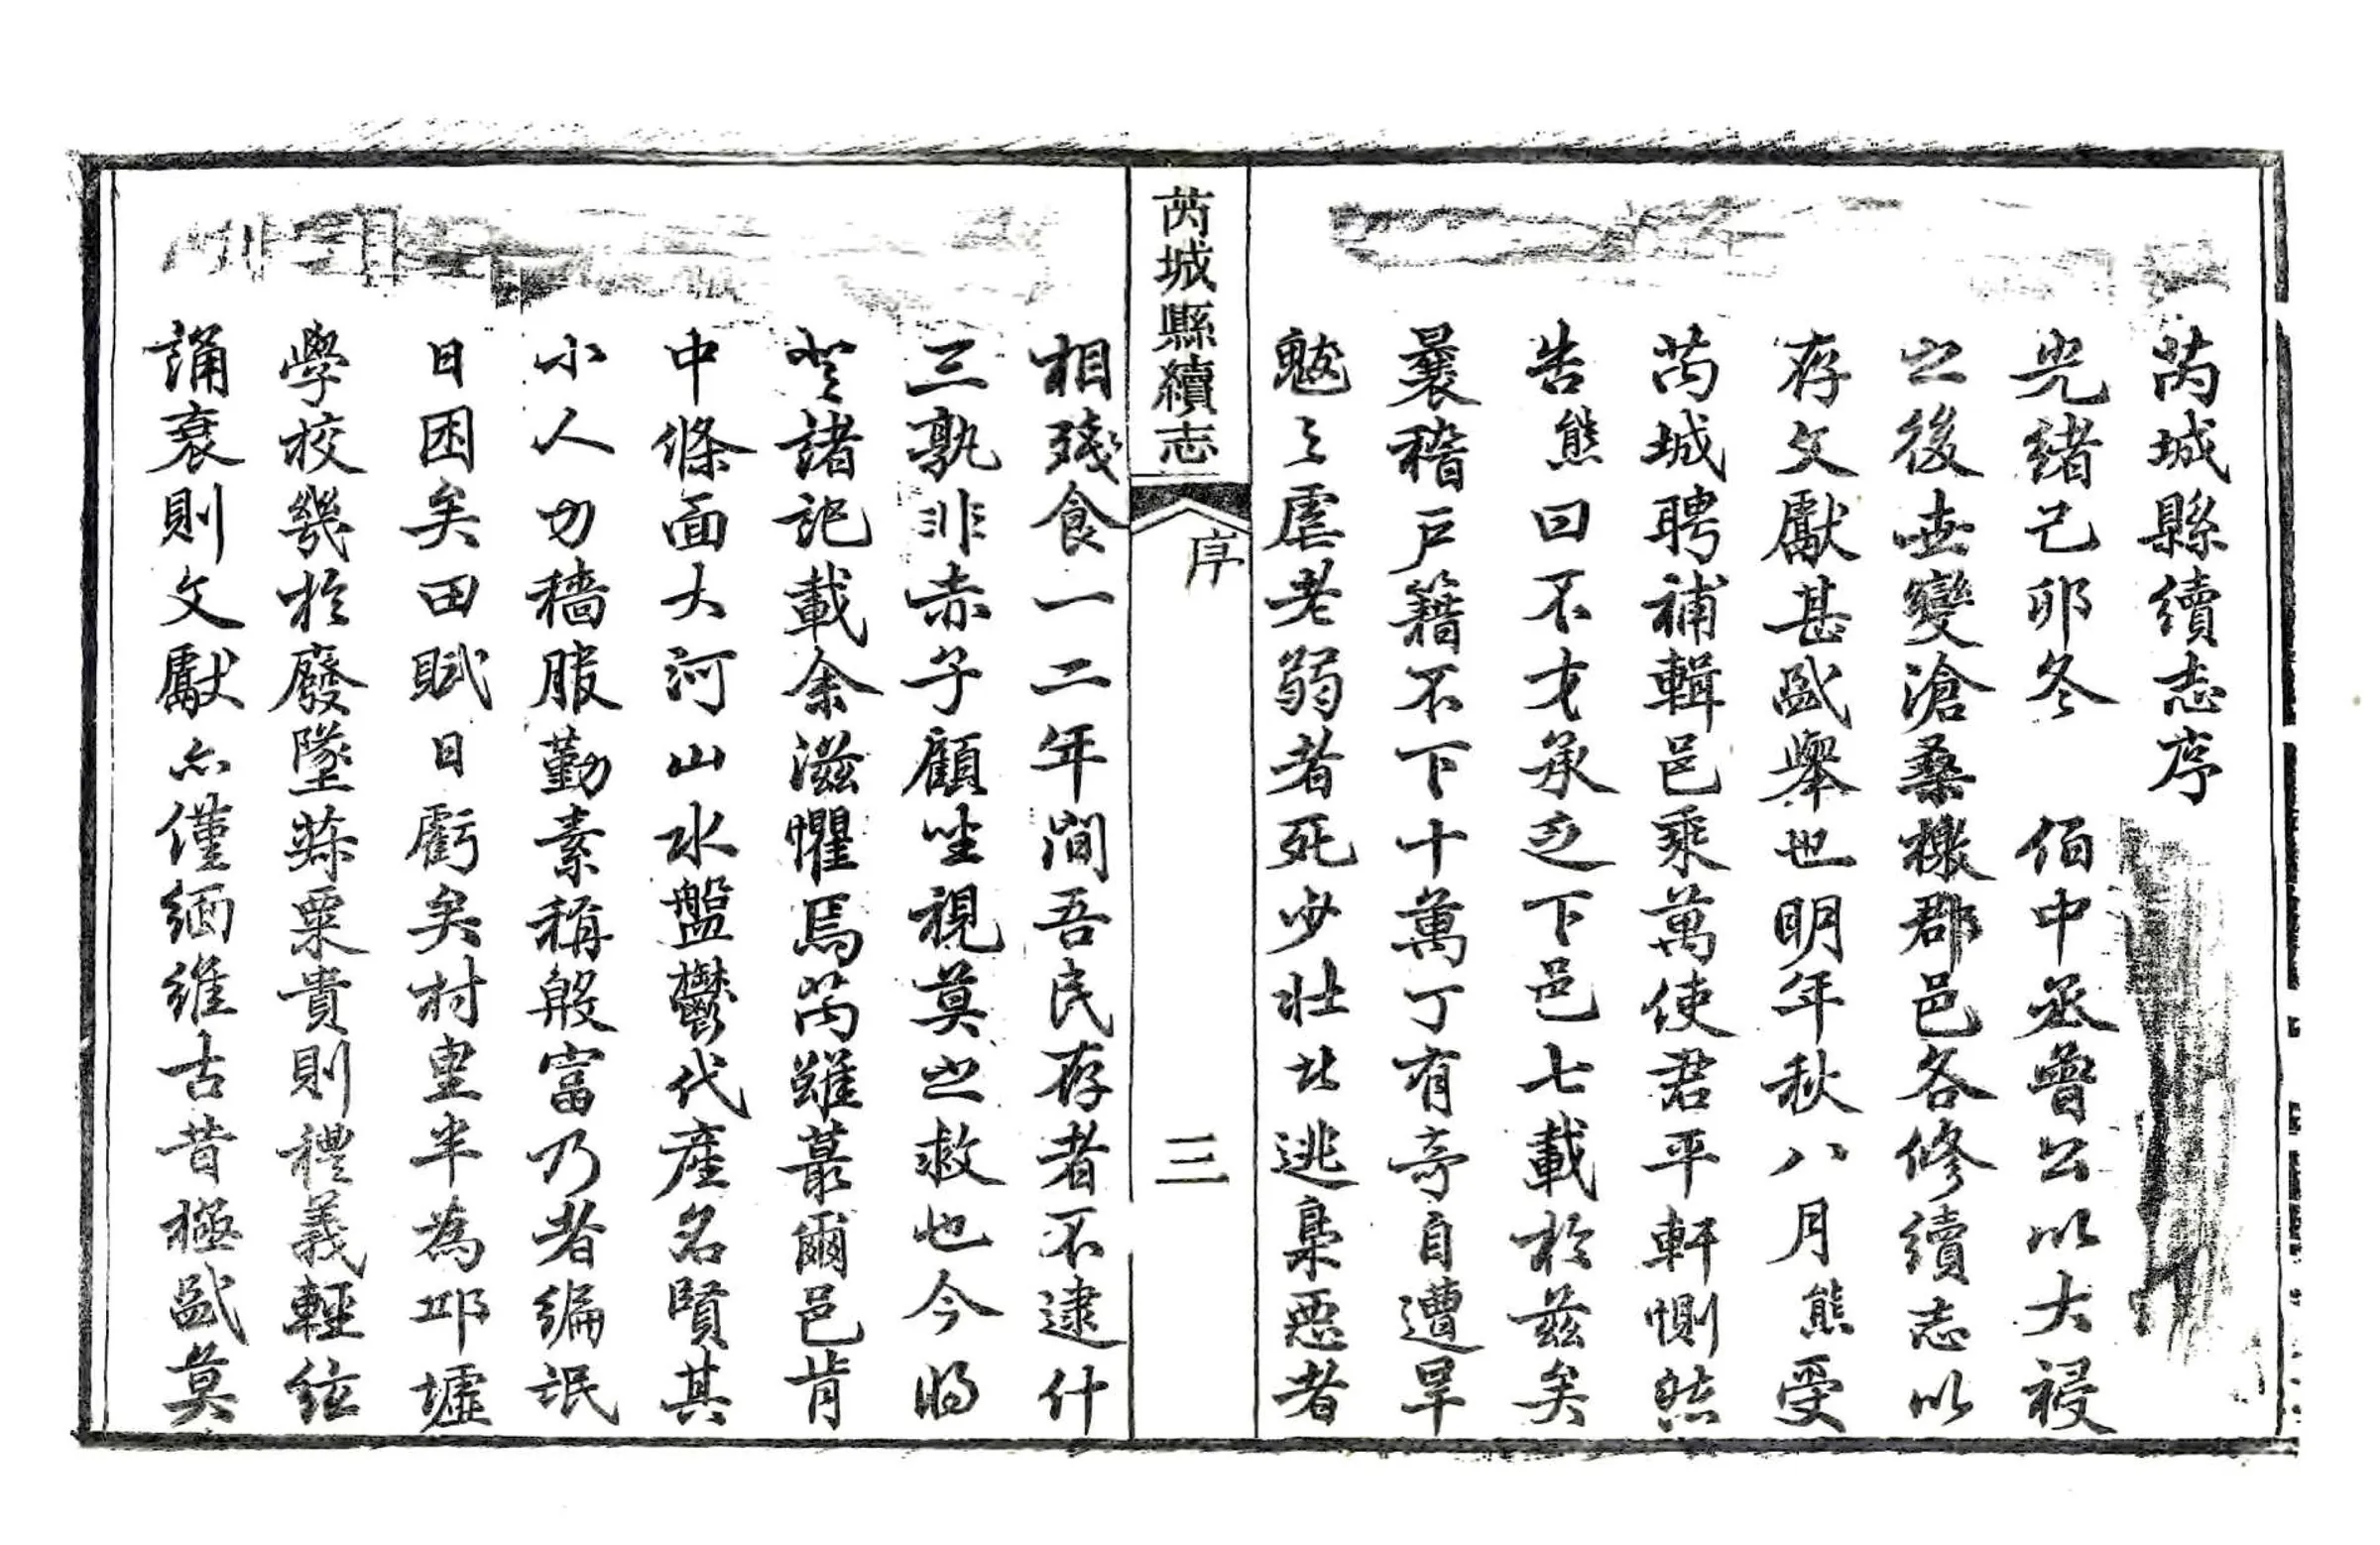 芮城縣續志序
光緒己卯冬　伯中丞曾公以大祲
之後世變滄桑檄郡邑各修續志以
存文獻甚盛舉也明年秋八月熊受
芮城聘補輯邑乘萬使君平軒惻然
告熊曰不才承乏下邑七載於茲矣
曩稽戶籍不下十萬丁有奇自遭旱
魃之虐老弱者死少壯北逃梟惡者
芮城縣續志
序
三
相殘食一二年間吾民存者不逮什
三孰非赤子顧坐視莫之救也今將
登諸記載余滋懼焉芮雖蕞爾邑肯
中條面大河山水盤鬱代產名賢其
小人力穡服勤素稱殷富乃者編氓
日困矣田賦日虧矣村里半為邱墟
學校幾於廢墜菽粟貴則禮義輕絃
誦衰則文獻亦僅緬維古昔極盛莫